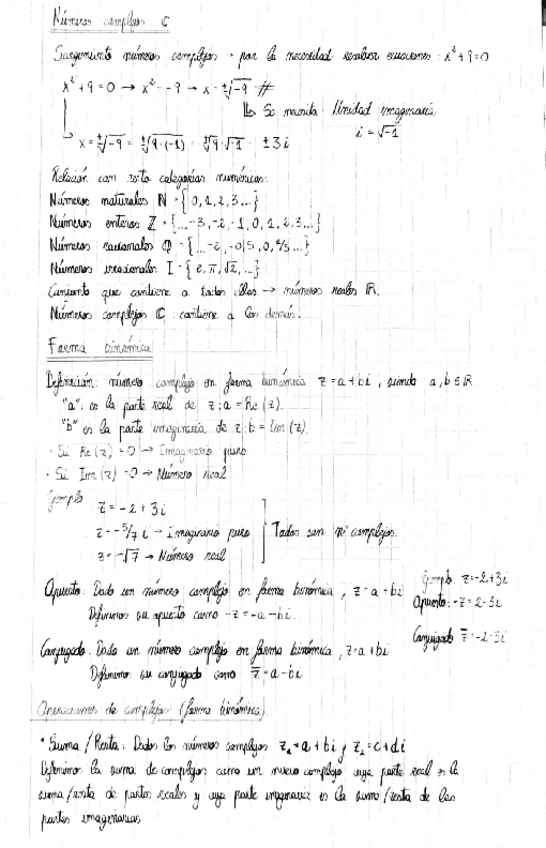 Números complejos ℂ
Surgimiento números complejos → por la necesidad resolver ecuaciones: x²+9=0
x²+9=0 → x²=-9 → x=±√-9 #
↳ Se necesita Unidad imaginaria
i=√-1
↳ x=±√-9 = ±√9·(-1) = ±√9·√-1 = ±3i
Relación con resto categorías numéricas:
Números naturales ℕ = {0,1,2,3...}
Números enteros ℤ = {...-3,-2,-1,0,1,2,3...}
Números racionales ℚ = {...-2,-0'5,0,4/5...}
Números irracionales I = {e,π,√2,...}
Conjunto que contiene a todos ellos → números reales ℝ.
Números complejos ℂ contiene a los demás.
Forma binómica
Definición: número complejo en forma binómica z=a+bi, siendo a,b∈ℝ
"a": es la parte real de z; a=Re(z).
"b" es la parte imaginaria de z; b=Im(z).
· Si Re(z)=0 → Imaginario puro
· Si Im(z)=0 → Número real
Ejemplo
z=-2+3i
z=-5/7 i → Imaginario puro ] Todos son nº complejos.
z=-√7 → Número real
Opuesto: Dado un número complejo en forma binómica, z=a+bi
Definimos su opuesto como -z=-a-bi.
Ejemplo: z=-2+3i
Opuesto: -z=2-3i
Conjugado z̄=-2-3i
Conjugado: Dado un número complejo en forma binómica, z=a+bi
Definimos su conjugado como z̄=a-bi
Operaciones de complejos (forma binómica)
· Suma/Resta: Dados los números complejos z₁=a+bi y z₂=c+di
Definimos la suma de complejos como un nuevo complejo cuya parte real es la
suma/resta de partes reales y cuya parte imaginaria es la suma/resta de las
partes imaginarias